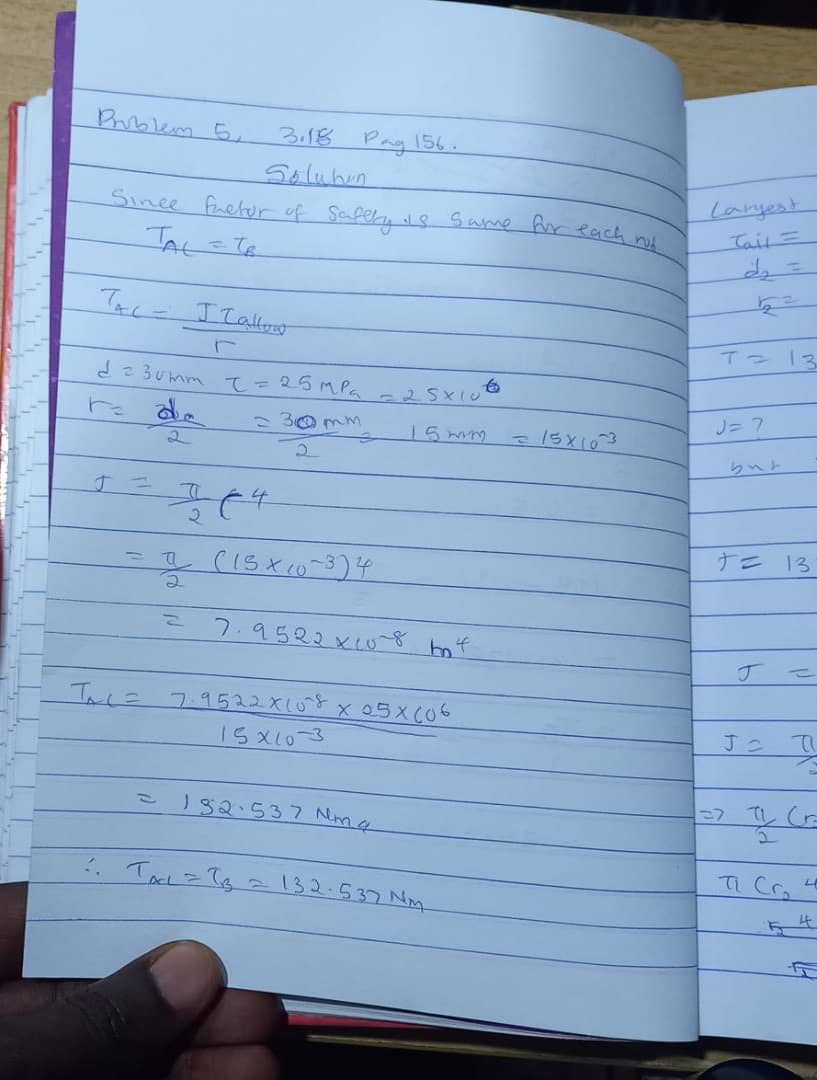 Problem 5, 3.18 Pag 156.
Solution
Since factor of safety is same for each rod
T_AC = T_B
T_AC = J τallow / r
d = 30mm τ = 25 MPa = 25x10^6
r = d/2 = 30mm/2 = 15mm = 15x10^-3
J = π/2 r^4
= π/2 (15x10^-3)4
= 7.9522x10^-8 m^4
T_AC = 7.9522x10^-8 x 25x10^6 / 15x10^-3
= 132.537 Nm
∴ T_AC = T_B = 132.537 Nm
Largest
τall =
d2 =
r2 =
T = 13
J = ?
but
J = 13
J =
J = π
=> π/2 (r2
π (r2 4
r2 4
r2